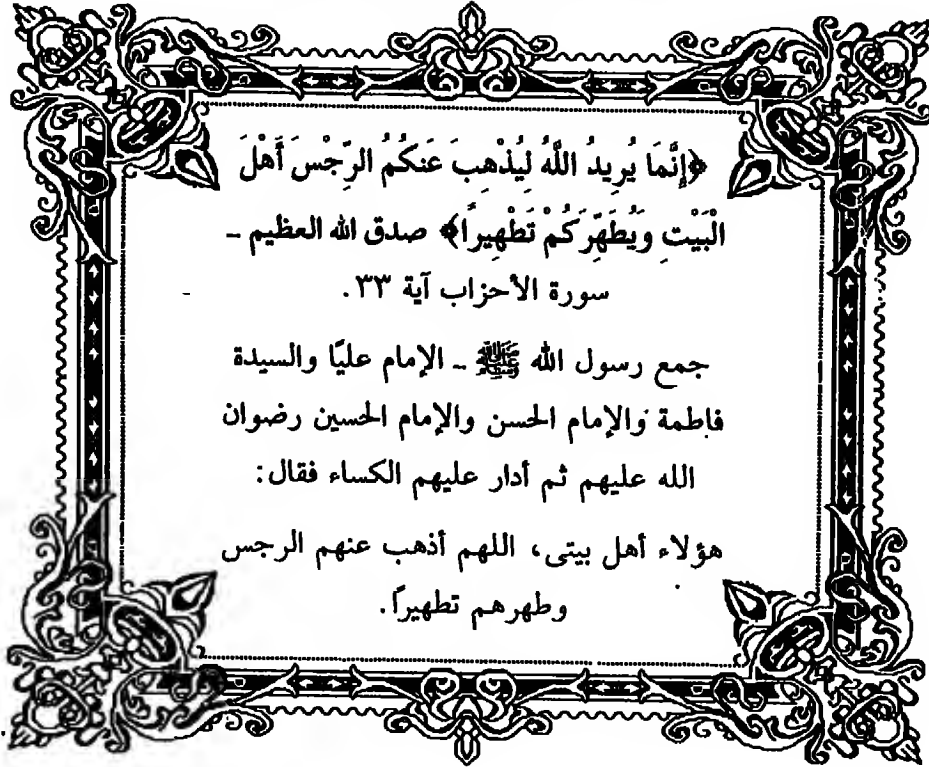 ﴿إِنَّمَا يُرِيدُ اللَّهُ لِيُذْهِبَ عَنكُمُ الرِّجْسَ أَهْلَ
الْبَيْتِ وَيُطَهِّرَكُمْ تَطْهِيراً﴾ صدق الله العظيم -
سورة الأحزاب آية ٣٣.
جمع رسول الله ﷺ - الإمام عليًا والسيدة
فاطمة والإمام الحسن والإمام الحسين رضوان
الله عليهم ثم أدار عليهم الكساء فقال:
هؤلاء أهل بيتى، اللهم أذهب عنهم الرجس
وطهرهم تطهيراً.